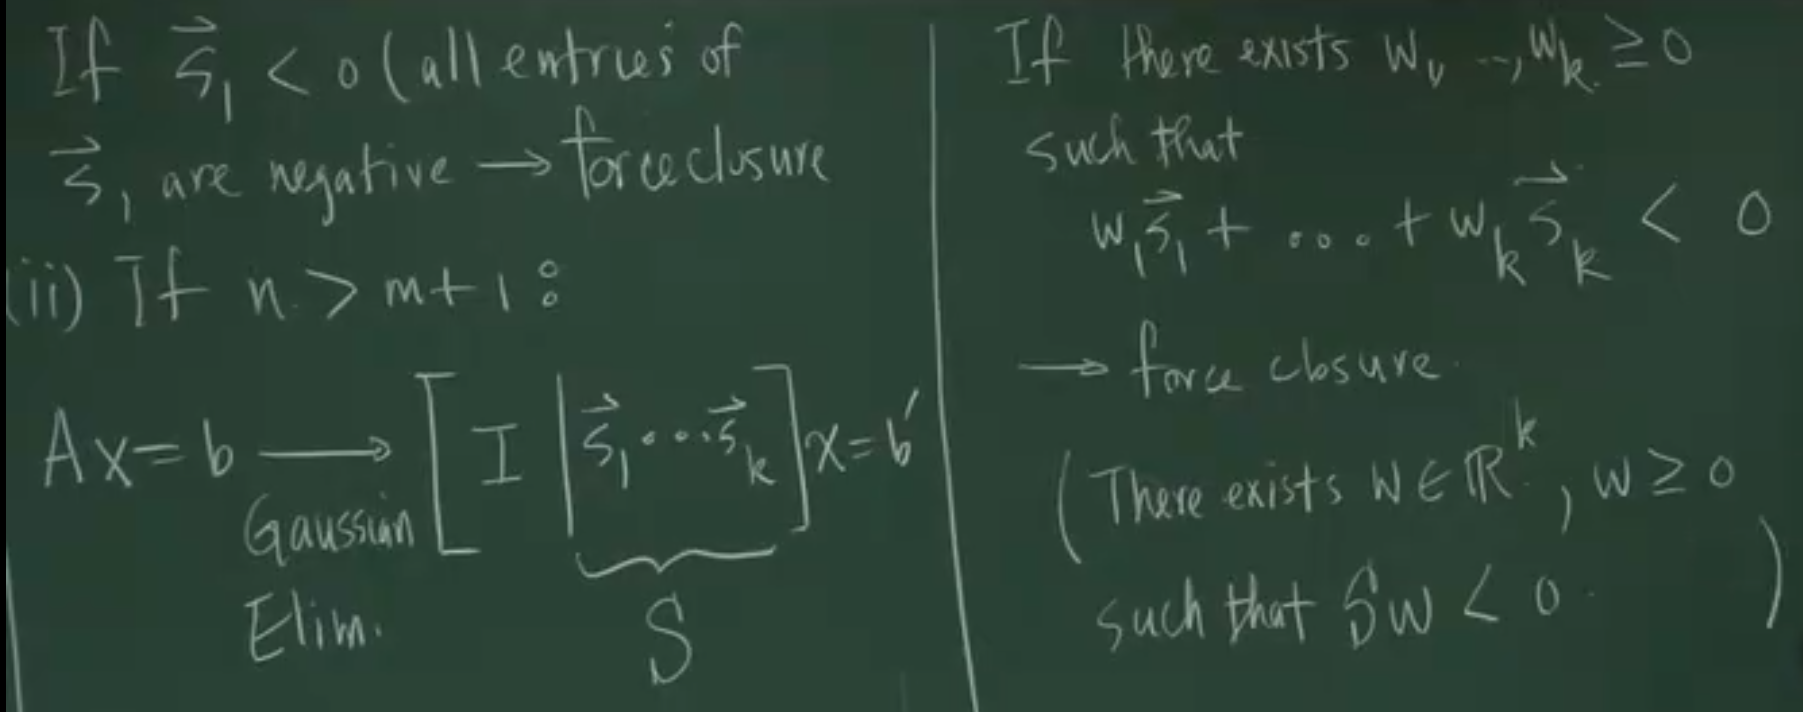 If s⃗₁ < 0 (all entries of
s⃗₁ are negative → force closure
(ii) If n > m+1 :
Ax = b → [ I | s⃗₁ ... s⃗ₖ ] x = b′
Gaussian
Elim.
S
If there exists w₁, ..., wₖ ≥ 0
such that
w₁s⃗₁ + ... + wₖs⃗ₖ < 0
→ force closure.
(There exists W ∈ ℝᵏ, w ≥ 0
such that Sw < 0. )